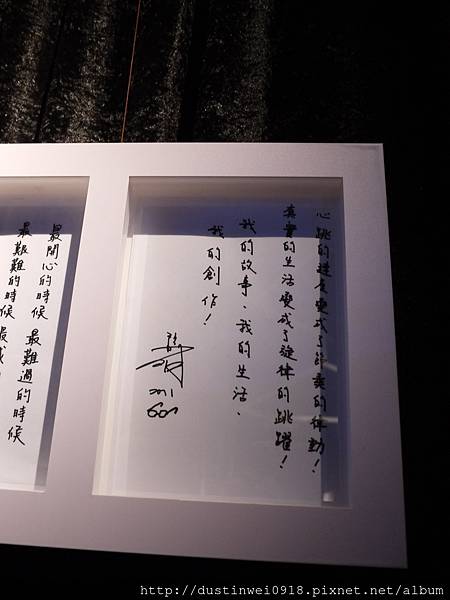 心跳的速度變成了節奏的律動！
真實的生活變成了旋律的跳躍！
我的故事、我的生活、
我的創作！
最開心的時候 最難過的時候
最艱難的時候
http://dustinwei0918.pixnet.net/album